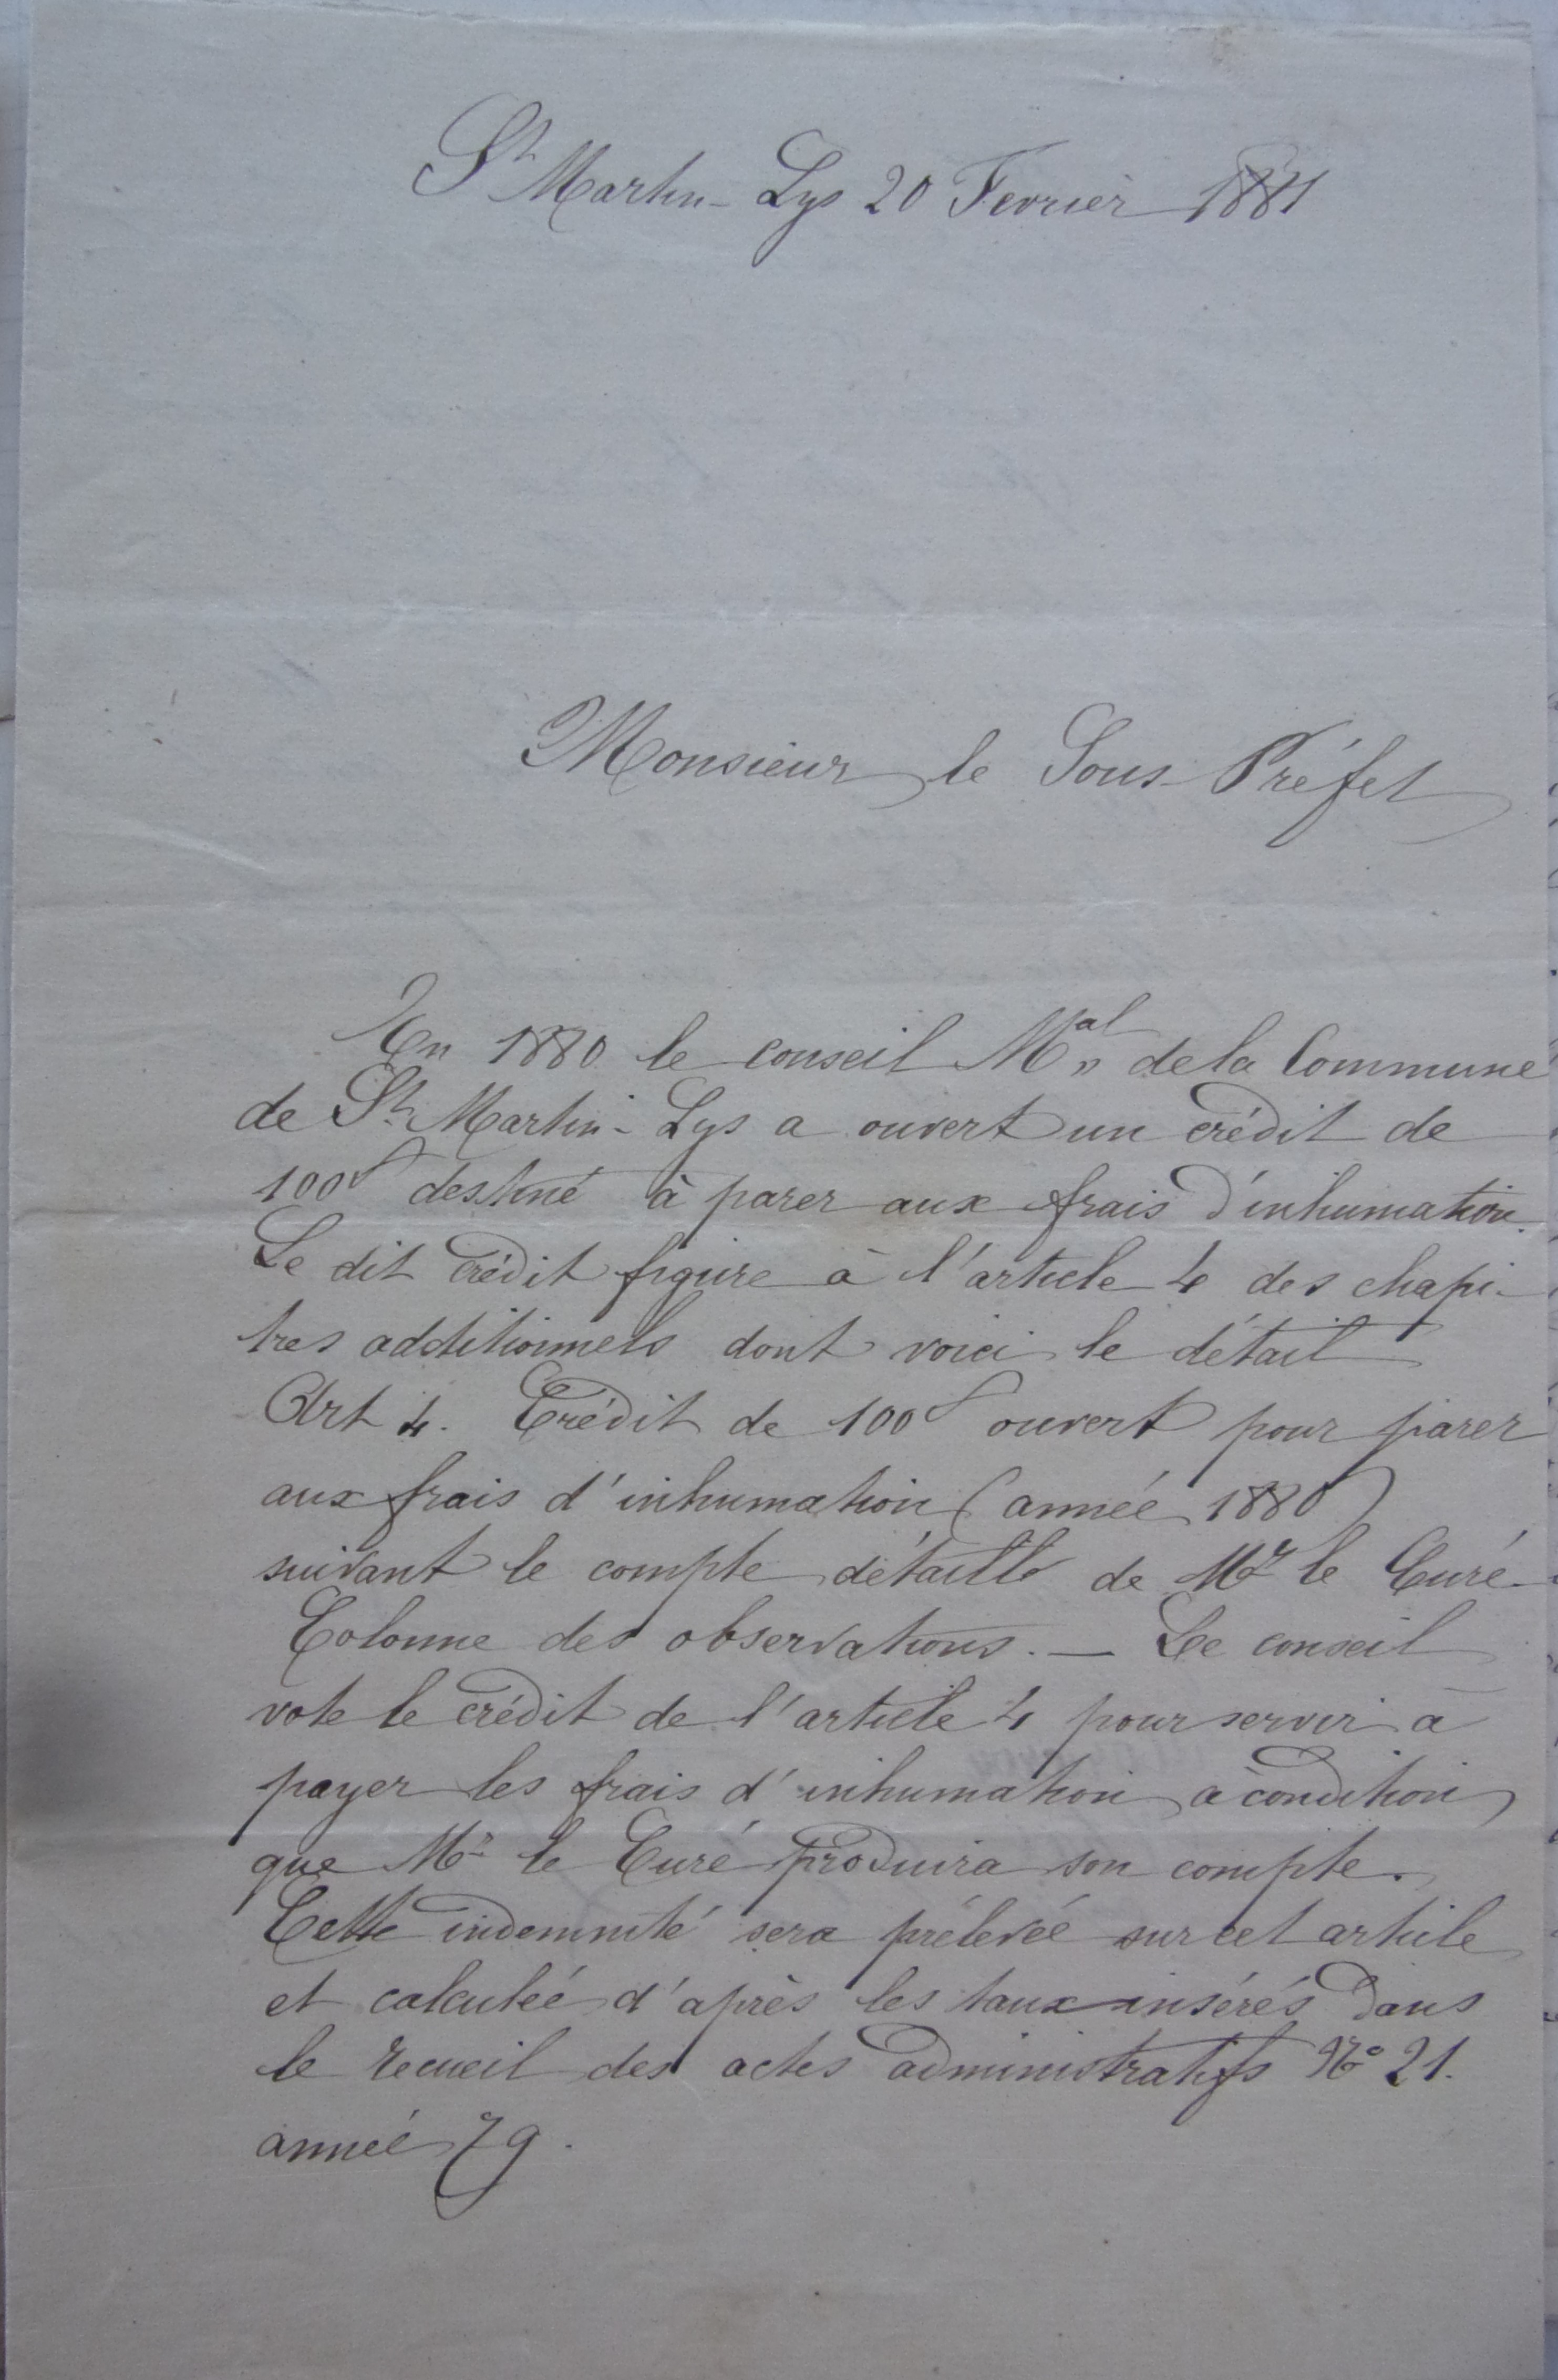 St Martin-Lys 20 Fevrier 1881
Monsieur le Sous-Préfet
En 1880 le conseil Mal de la Commune
de St Martin-Lys a ouvert un crédit de
100f destiné à parer aux frais d'inhumation.
Le dit crédit figure à l'article 4 des chapi-
tres additionnels dont voici le détail
Art 4. Crédit de 100f ouvert pour parer
aux frais d'inhumation (année 1880)
suivant le compte détaillé de Mr le Curé
Colonne des observations. — Le conseil
vote le crédit de l'article 4 pour servir à
payer les frais d'inhumation à condition
que Mr le Curé produira son compte.
Cette indemnité sera prélevée sur cet article
et calculée d'après les taux insérés dans
le recueil des actes administratifs No 21.
année 79.